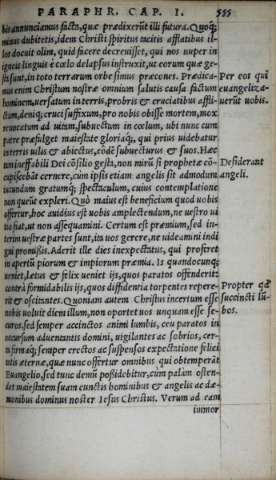 PARAPHR. CAP. I. 555
bis annunciamus facto, quæ prædixerūt illi futura. Quoq;
minus dubitetis, idem Christi spiritus incitis afflatibus il-
los docuit olim, quid facere decreuisset, qui nos nuper in
igneis linguis è cœlo delapsus instruxit, ut eorum quæ ge-
sta sunt, in toto terrarum orbe simus præcones. Prædica-
mus enim Christum nostræ omnium salutis causa factum
hominem, uersatum in terris, probris & cruciatibus affli-
ctum, deniq; cruci suffixum, pro nobis obisse mortem, mox
reuocatum ad uitam, subuectum in cœlum, ubi nunc cum
patre præfulget maiestate gloriaq; qui prius uidebatur
in terris uilis & abiectus, eōdē subuecturus & suos. Hæc
tam ineffabili Dei cōsilio gesta, non mirū si prophetæ cō-
cupiscebāt cernere, cùm ipsis etiam angelis sit admodum
iucundum gratumq; spectaculum, cuius contemplatione
non queūt expleri. Quò maius est beneficium quod uobis
offertur, hoc auidius est uobis amplectendum, ne uestro ui
tio fiat, ut non assequamini. Certum est præmium, sed in-
terim uestræ partes sunt, in uos gerere, ne uideamini indi
gni promissis. Aderit ille dies inexpectatus, qui proferet
in apertū piorum & impiorum præmia. Is quandocunq;
ueniet, lætus & felix ueniet ijs, quos paratos offenderit:
contrà formidabilis ijs, quos diffidentia torpentes repere-
rit & oscitantes. Quoniam autem Christus incertum esse
nobis uoluit diem illum, non oportet uos unquam esse se-
curos, sed semper accinctos animi lumbis, ceu paratos in
occursum aduenientis domini, uigilantes ac sobrios, cer-
ta firmaq; semper erectos ac suspensos expectatione felici
tatis æternæ, quæ nunc offertur omnibus qui obtemperāt
Euangelio, sed tunc demū possidebitur, cùm palàm osten-
det maiestatem suam cunctis hominibus & angelis ac dæ-
monibus dominus noster Iesus Christus. Verum ad eam
summor
Per eos qui
euangeliza-
uerūt uobis.
Desiderant
angeli.
Propter qđ
succincti lū-
bos.